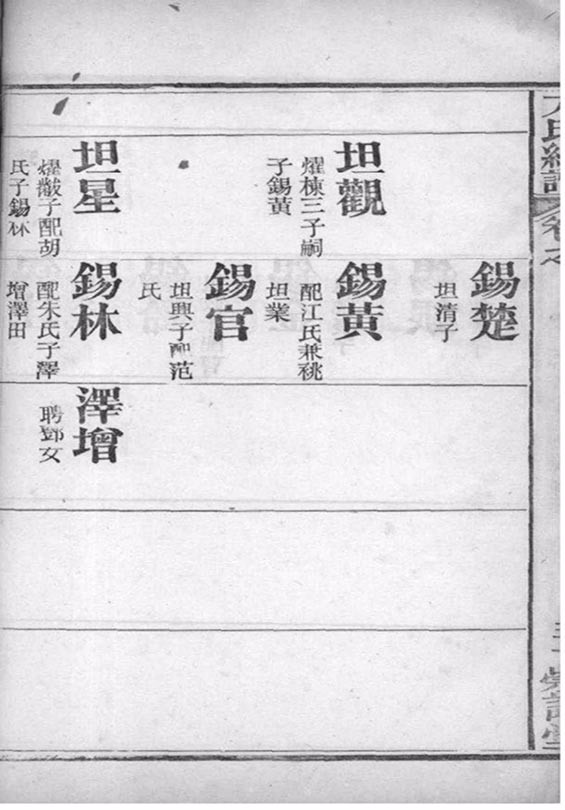 錫楚
坦清子
坦觀
燿棟三子嗣
子錫黃
錫黃
配江氏兼祧
坦業
錫官
坦興子配范
氏
坦星
燿黻子配胡
氏子錫林
錫林
配朱氏子澤
增澤田
澤增
聘鄧女